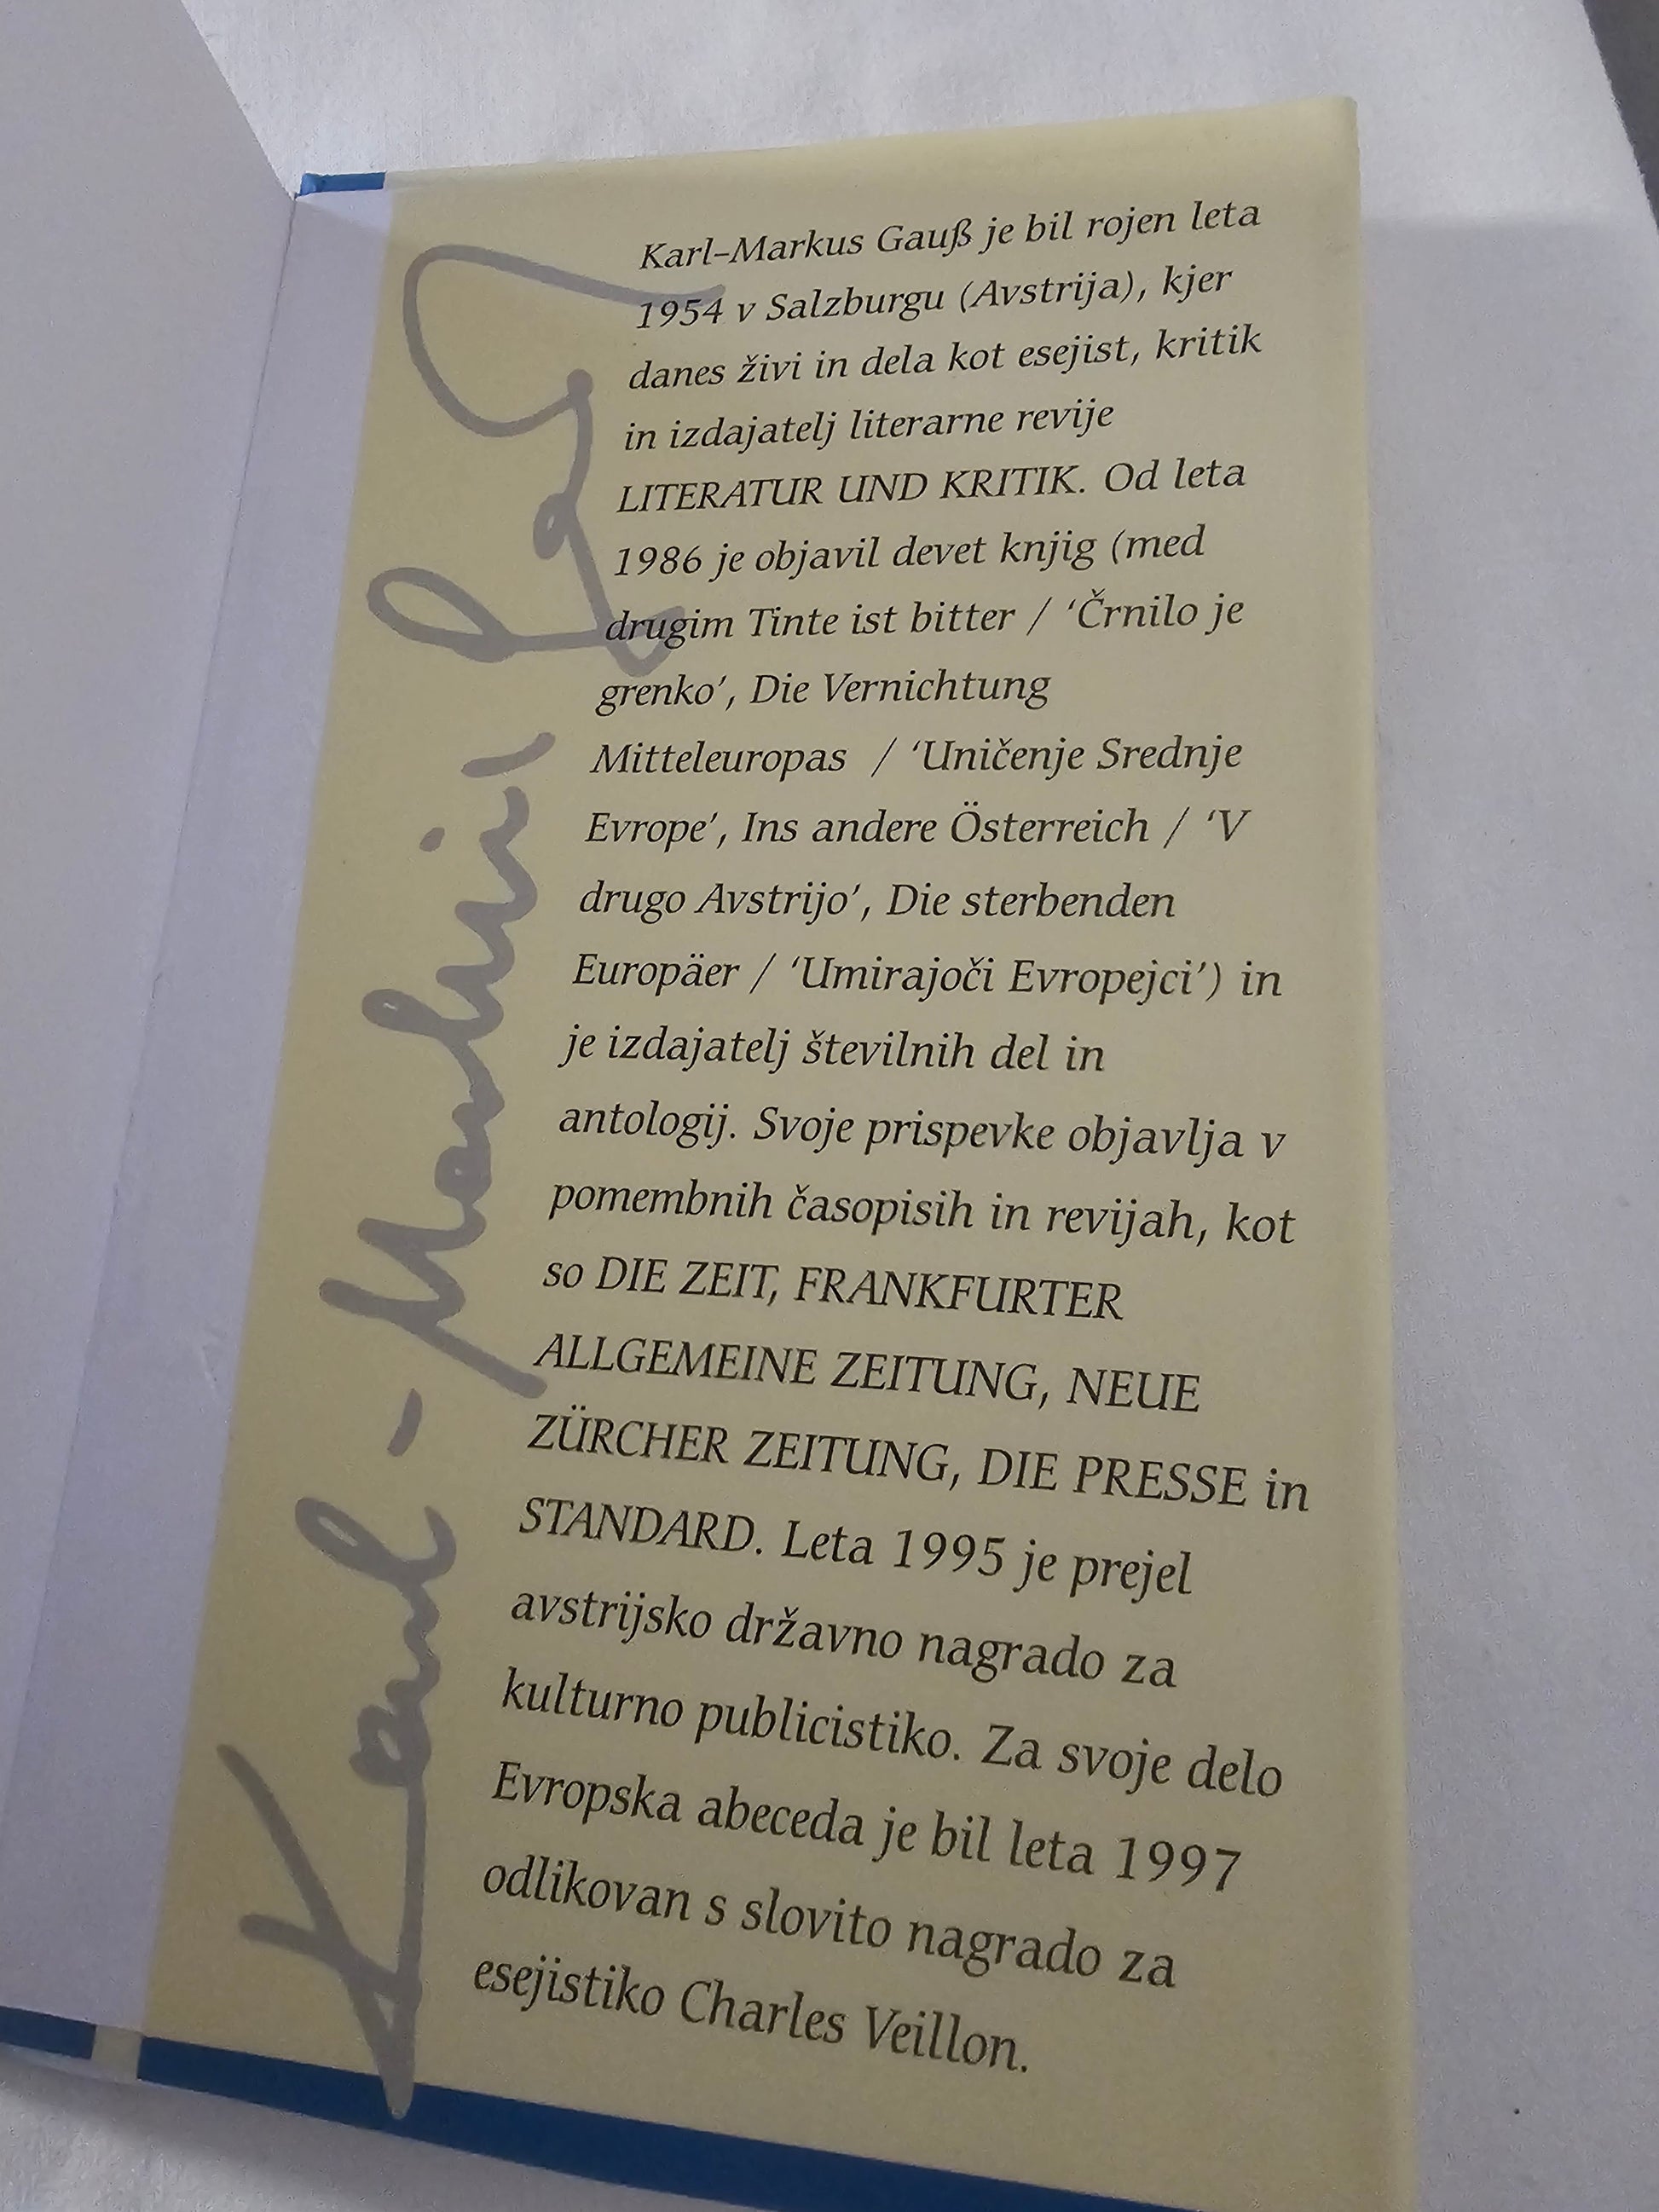 Karl–Markus Gauß je bil rojen leta
1954 v Salzburgu (Avstrija), kjer
danes živi in dela kot esejist, kritik
in izdajatelj literarne revije
LITERATUR UND KRITIK. Od leta
1986 je objavil devet knjig (med
drugim Tinte ist bitter / ‘Črnilo je
grenko’, Die Vernichtung
Mitteleuropas / ‘Uničenje Srednje
Evrope’, Ins andere Österreich / ‘V
drugo Avstrijo’, Die sterbenden
Europäer / ‘Umirajoči Evropejci’) in
je izdajatelj številnih del in
antologij. Svoje prispevke objavlja v
pomembnih časopisih in revijah, kot
so DIE ZEIT, FRANKFURTER
ALLGEMEINE ZEITUNG, NEUE
ZÜRCHER ZEITUNG, DIE PRESSE in
STANDARD. Leta 1995 je prejel
avstrijsko državno nagrado za
kulturno publicistiko. Za svoje delo
Evropska abeceda je bil leta 1997
odlikovan s slovito nagrado za
esejistiko Charles Veillon.
Karl - Markus